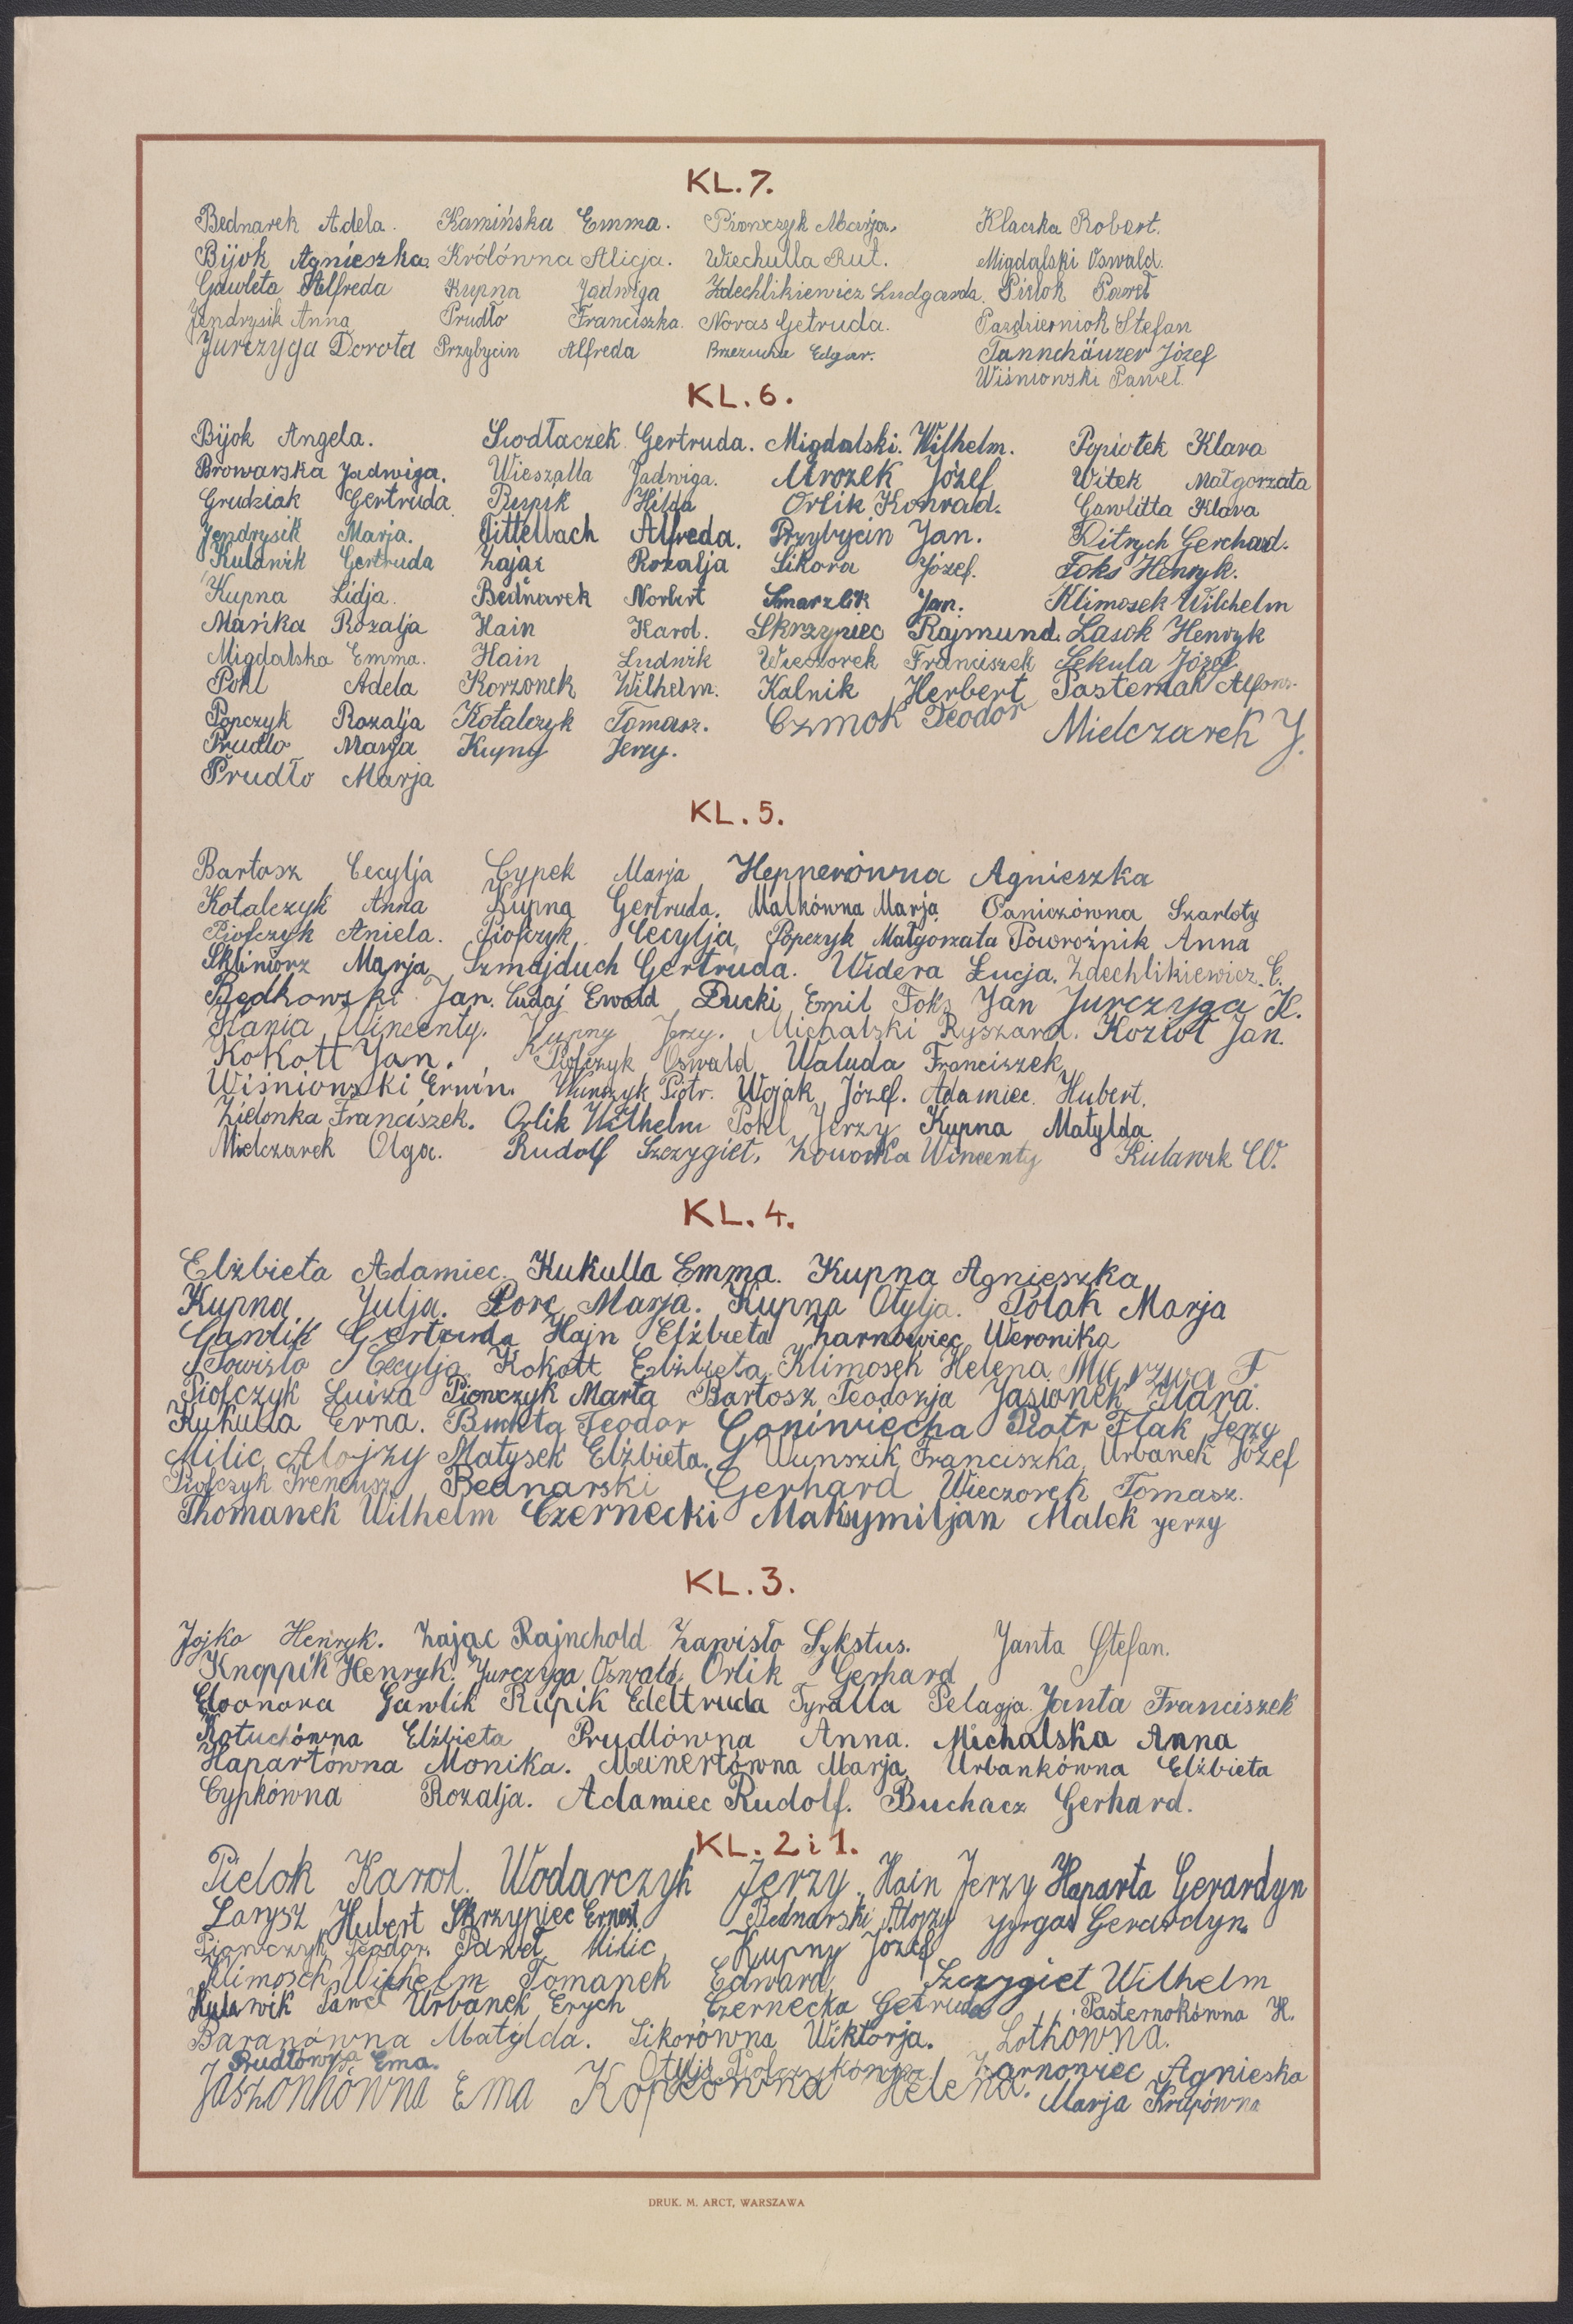 KL. 7.
Bednarek Adela. Kamińska Emma. Pionczyk Marja. Klaczka Robert.
Bijok Agnieszka. Królówna Alicja. Wiechulla Rut. Migdalski Oswald.
Gawleta Alfreda Kupna Jadwiga Zdechlikiewicz Ludgarda. Pielok Paweł
Jendrysik Anna Prudło Franciszka. Novas Getruda. Pazdzierniok Stefan
Jurczyga Dorota Przybycin Alfreda Brzezucha Edgar. Tannchäuzer Józef
Wiśniowski Paweł.
KL. 6.
Bijok Angela. Siodłaczek Gertruda. Migdalski. Wilhelm. Popiołek Klara
Browarska Jadwiga. Wieszalla Jadwiga. Mrozek Józef Witek Małgorzata
Grudziak Gertruda Rupik Hilda Orlik Konrad. Gawlitta Klara
Jendrysik Marja. Tittelbach Alfreda. Przybycin Jan. Ditrych Gerchard.
Kulawik Gertruda Zając Rozalja Sikora Józef. Foks Henryk.
Kupna Lidja. Bednarek Norbert Smarzlik Jan. Klimosek Wilchelm
Mańka Rozalja Hain Karol. Skrzypiec Rajmund. Lasok Henryk
Migdalska Emma. Hain Ludwik Wieczorek Franciszek Sekula Józef
Pohl Adela Korzonek Wilhelm. Kalnik Herbert Pasternak Alfons.
Popczyk Rozalja Kotalczyk Tomasz. Czmok Teodor Mielczarek J.
Prudlo Marja Kupny Jerzy.
Prudło Marja
KL. 5.
Bartosz Cecylja Cypek Marja Hepnerówna Agnieszka
Kotalczyk Anna Kupna Gertruda. Malkówna Marja Paniczówna Szarloty
Piolczyk Aniela. Piolczyk Cecylja, Popczyk Małgorzata Powroźnik Anna
Skliniorz Marja Szmajduch Gertruda. Widera Łucja. Zdechlikiewicz. C.
Będkowski Jan. Cudaj Ewald Ducki Emil Foks Jan Jurczyga K.
Kania Wincenty. Kupny Jerzy. Michalski Ryszard. Kozioł Jan.
Kokott Jan. Piolczyk Oswald Waluda Franciszek,
Wiśniowski Erwin. Wunczyk Piotr. Wojak Józef. Adamiec Hubert.
Zielonka Franciszek. Orlik Wilhelm Pohl Jerzy Kupna Matylda.
Mielczarek Olga. Rudolf Szczygieł, Zoworka Wincenty Kulawik W.
KL. 4.
Elżbieta Adamiec. Kukulla Emma. Kupna Agnieszka
Kupna Julja. Porc Marja. Kupna Otylja. Polak Marja
Gawlik Gertruda Hajn Elżbieta Żarnowiec Weronika
Powisło Cecylja Kokott Elżbieta Klimosek Helena. Murzwa F.
Piolczyk Luiza Pionczyk Marta Bartosz Teodozja Jasionek Klara.
Kukulla Erna. Buchta Teodor Goniwiecha Piotr Flak Jerzy
Milic Alojzy Matysek Elżbieta. Wunszik Franciszka, Urbanek Józef
Piolczyk Ireneusz Bednarski Gerhard Wieczorek Tomasz.
Thomanek Wilhelm Czernecki Maksymiljan Malek Jerzy
KL. 3.
Jojko Henryk. Zając Rajnchold Zawisło Sykstus. Janta Stefan.
Knoppik Henryk. Jurczyga Oswald. Orlik Gerhard
Eleonora Gawlik Rupik Edeltruda Tyralla Pelagja. Janta Franciszek
Kotuchówna Elżbieta Prudlówna Anna. Michalska Anna
Hapartówna Monika. Meinertówna Marja. Urbankówna Elżbieta
Cypkówna Rozalja. Adamiec Rudolf. Buchacz Gerhard.
KL. 2 i 1.
Pielok Karol. Wodarczyk Jerzy. Hain Jerzy Haparta Gerardyn
Larysz Hubert Skrzypiec Ernest Bednarski Alojzy Jyrgas Gerardyn.
Pionczyk Teodor. Paweł Milic, Kupny Józef
Klimosek Wilhelm Tomanek Edward, Szczygieł Wilhelm
Kulawik Paweł Urbanek Erych Czernecka Getruda Pasternokówna H.
Baranówna Matylda. Sikorówna Wiktorja. Lothówna.
Prudłówna Ema. Otylja Piolczykówna. Żarnowiec Agnieska
Jaszonkówna Ema Kopcówna Helena. Marja Krupówna
DRUK. M. ARCT, WARSZAWA